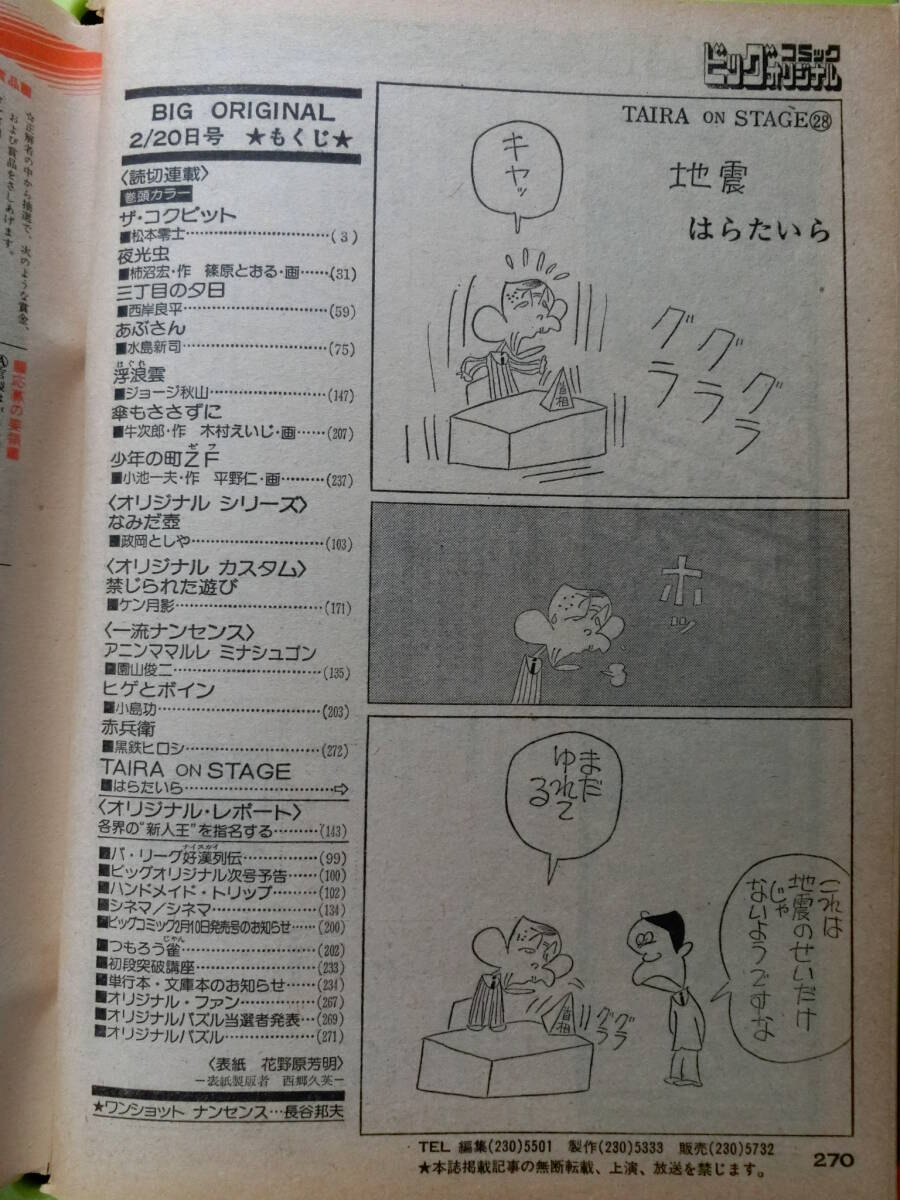 ビッグコミックオリジナル
BIG ORIGINAL
2/20日号 ★もくじ★
〈読切連載〉
巻頭カラー
ザ・コクピット
■松本零士……………………(3)
夜光虫
■柿沼宏・作 篠原とおる・画……(31)
三丁目の夕日
■西岸良平……………………(59)
あぶさん
■水島新司……………………(75)
浮浪雲
はぐれ
■ジョージ秋山………………(147)
傘もささずに
■牛次郎・作 木村えいじ・画……(207)
少年の町ZF
ゼフ
■小池一夫・作 平野仁・画………(237)
〈オリジナル シリーズ〉
なみだ壺
■政岡としや…………………(103)
〈オリジナル カスタム〉
禁じられた遊び
■ケン月影……………………(171)
〈一流ナンセンス〉
アニンママルレ ミナシュゴン
■園山俊二……………………(135)
ヒゲとボイン
■小島功………………………(203)
赤兵衛
■黒鉄ヒロシ…………………(272)
TAIRA ON STAGE
■はらたいら…………………⇨
〈オリジナル・レポート〉
各界の“新人王”を指名する………(143)
■パ・リーグ好漢列伝……………(99)
ナイスガイ
■ビッグオリジナル次号予告……(100)
■ハンドメイド・トリップ………(102)
■シネマ/シネマ…………………(134)
■ビッグコミック2月10日発売号のお知らせ……(200)
■つもろう雀……………………(202)
じゃん
■初段突破講座…………………(233)
■単行本・文庫本のお知らせ……(234)
■オリジナル・ファン……………(267)
■オリジナルパズル当選者発表…(269)
■オリジナルパズル……………(271)
〈表紙 花野原芳明〉
―表紙製版者 西郷久英―
★ワンショット ナンセンス…長谷邦夫
TAIRA ON STAGE㉘
地震
はらたいら
キャッ
グラ
グラ
グラ
首相
ホッ
まだ
ゆれて
る
首相
グラ
グラ
これは
地震のせいだけ
じゃ
ないようですな
TEL 編集(230)5501 製作(230)5333 販売(230)5732
★本誌掲載記事の無断転載、上演、放送を禁じます。
270
☆正解者の中から抽選で、次のような賞金、
および賞品をさしあげます。
■応募の要領■